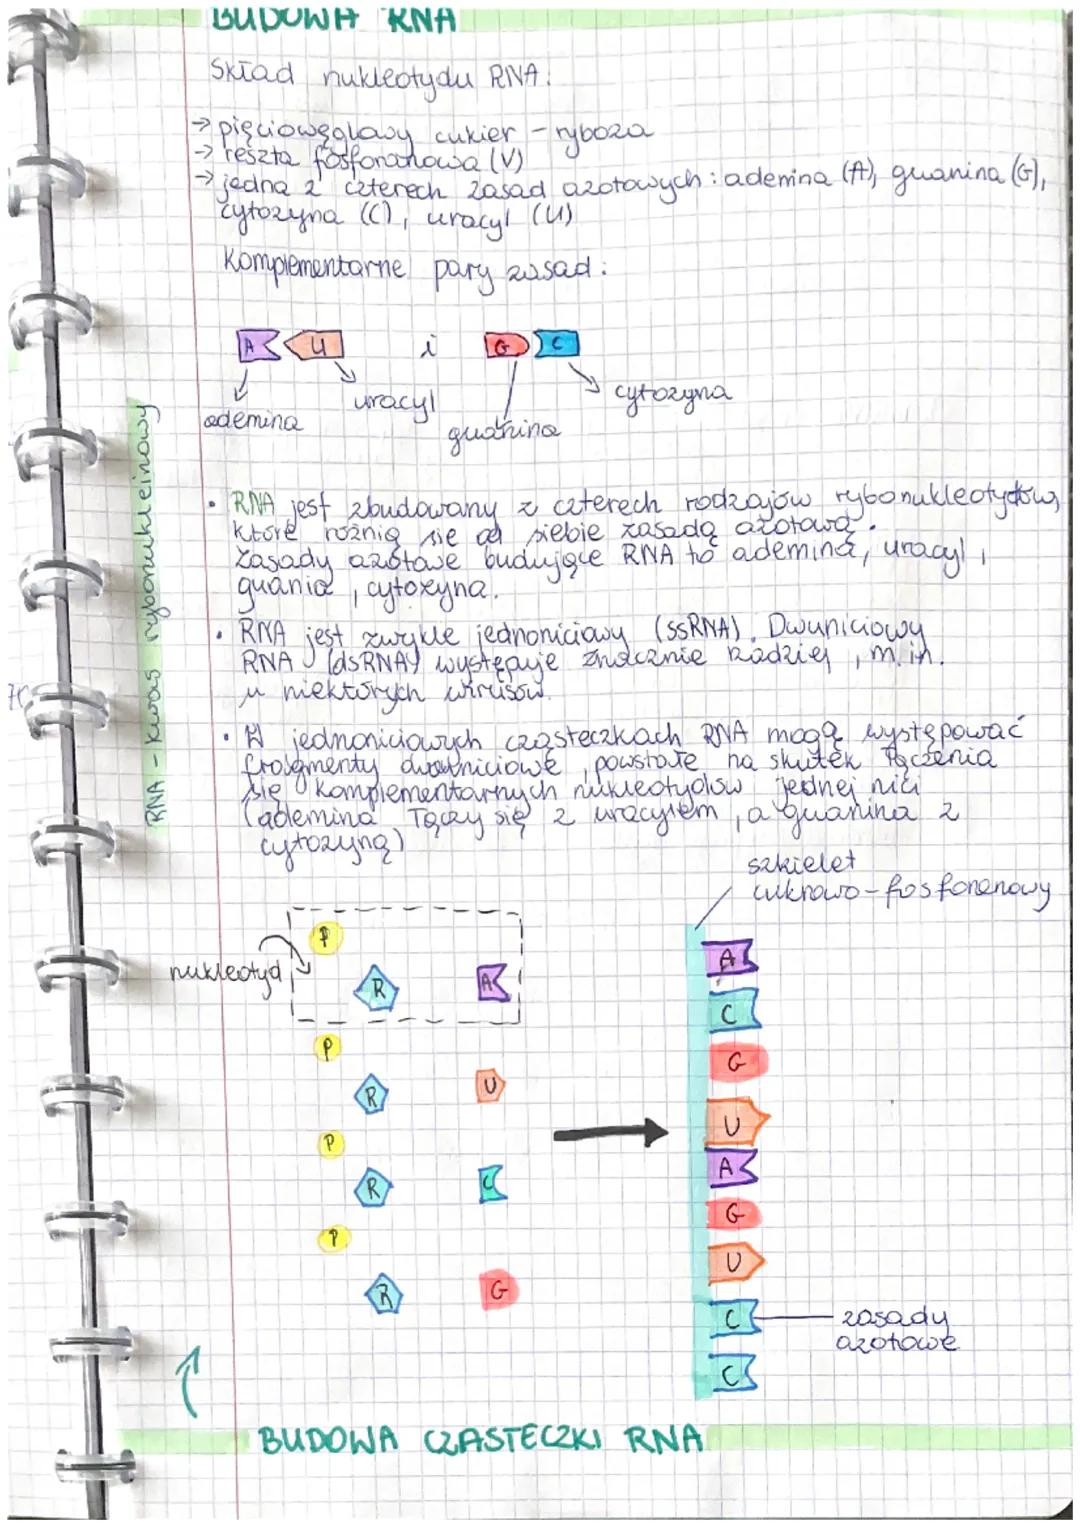 BUDOWA RNA
Skład nukleotydu RNA:
→ pięciowęglowy cukier - ryboza
→ reszta fosforanowa (V)
→ jedna z czterech zasad azotowych: adenina (A), guanina (G),
cytozyna (C), uracyl (U)
Komplementarne pary zasad:
A U i G C
adenina uracyl guanina cytozyna
RNA - kwas rybonukleinowy
• RNA jest zbudowany z czterech rodzajów rybonukleotydów,
które różnią się od siebie zasadą azotową.
Zasady azotowe budujące RNA to adenina, uracyl,
guania, cytozyna.
• RNA jest zwykle jednoniciowy (ssRNA). Dwuniciowy
RNA (dsRNA) występuje znacznie rzadziej, m.in.
u niektórych wirusów.
• W jednoniciowych cząsteczkach RNA mogą występować
fragmenty dwuniciowe, powstałe na skutek łączenia
się komplementarnych nukleotydów jednej nici
(adenina łączy się z uracylem, a guanina z
cytozyną)
szkielet
cukrowo-fosforanowy
nukleotyd
P
R A
P
R U
P
R C
P
R G
A
C
G
U
A
G
U
C
C
zasady
azotowe
BUDOWA CZĄSTECZKI RNA